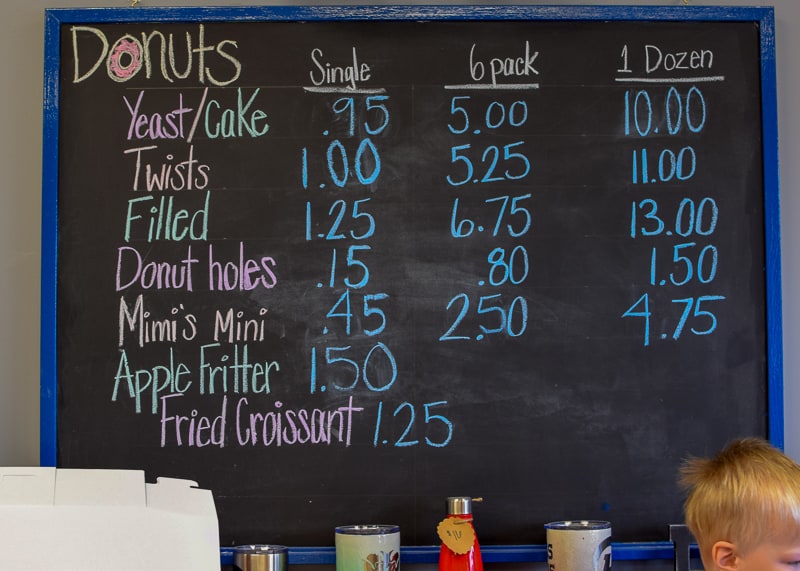 Donuts Single 6 pack 1 Dozen
Yeast/Cake .95 5.00 10.00
Twists 1.00 5.25 11.00
Filled 1.25 6.75 13.00
Donut holes .15 .80 1.50
Mimi's Mini .45 2.50 4.75
Apple Fritter 1.50
Fried Croissant 1.25